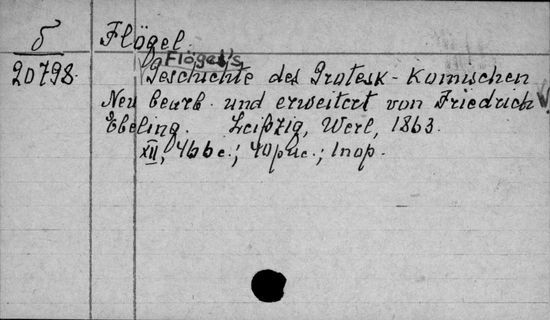 б Flögel.
Flögel's
20798. Geschichte des Grotesk-Komischen
Neu bearb. und erweitert von Friedrich
Ebeling. Leipzig, Werl, 1863.
XII, 466 с.; 40 рис.; 1 пор.